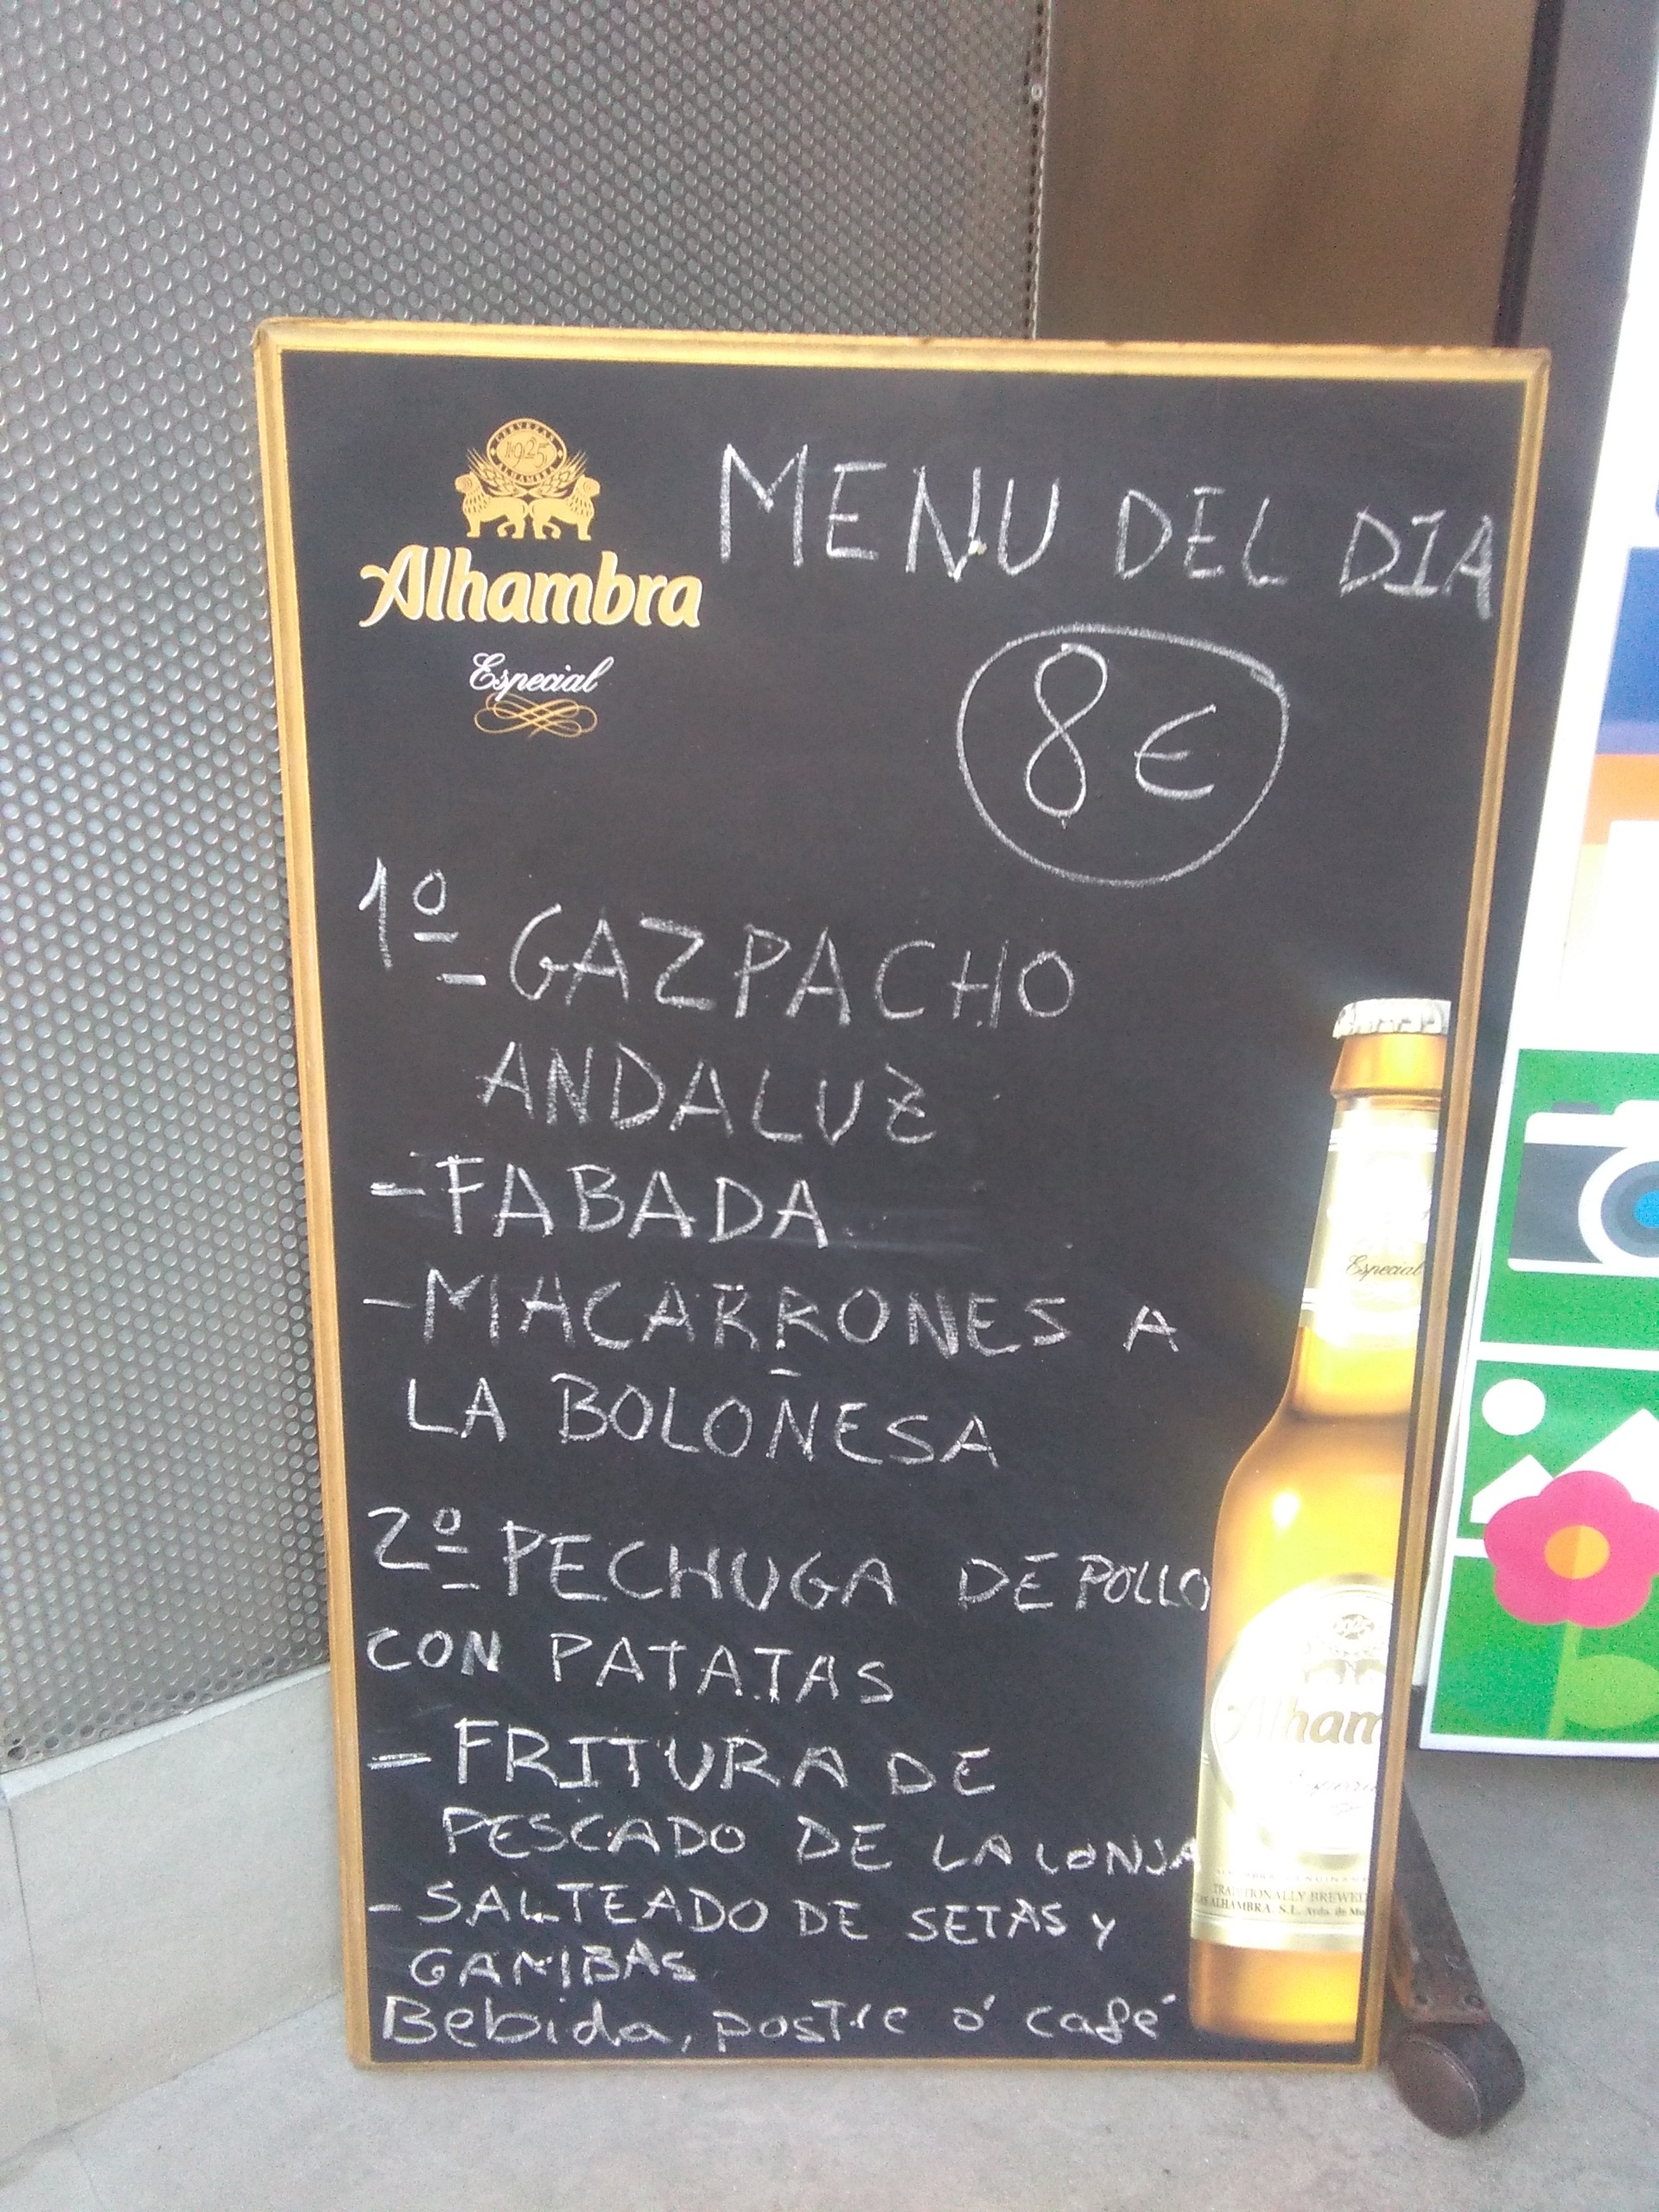 CERVEZAS
1925
ALHAMBRA
Alhambra
Especial
MENU DEL DIA
8€
1º
- GAZPACHO
ANDALUZ
- FABADA
- MACARRONES A
LA BOLOÑESA
2º
- PECHUGA DE POLLO
CON PATATAS
- FRITURA DE
PESCADO DE LA LONJA
- SALTEADO DE SETAS Y
GAMBAS
Bebida, postre ó café
Especial
Alham
TRADITIONALLY BREWED
ALHAMBRA S.L. Avda. de